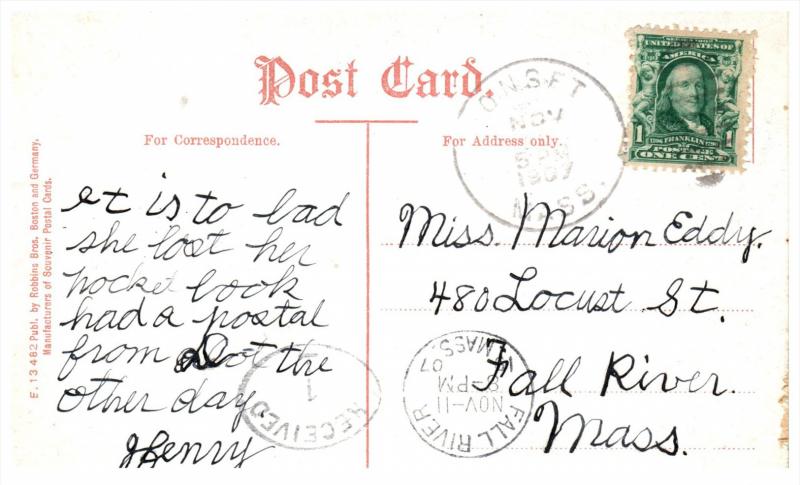 Post Card.
For Correspondence.
For Address only.
E. 13482 Publ. by Robbins Bros. Boston and Germany.
Manufacturers of Souvenir Postal Cards.
et is to bad
she lost her
pocket book
had a postal
from Dot the
other day
Henry
Miss. Marion Eddy.
480 Locust St.
Fall River.
Mass.
ONSET
NOV
1907
MASS.
SERIES 1902
UNITED STATES OF
AMERICA
1 FRANKLIN 1
POSTAGE
ONE CENT
FALL RIVER
NOV-11
8-PM
07
MASS.
RECEIVED
1